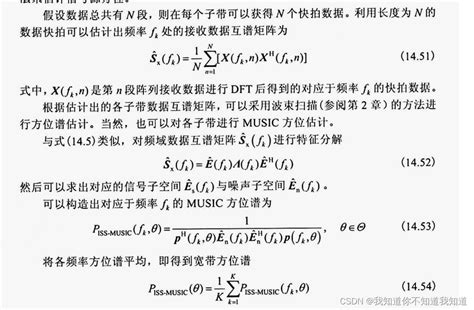 假设数据总共有 N 段，则在每个子带可以获得 N 个快拍数据。利用长度为 N 的
数据快拍可以估计出频率 f_k 处的接收数据互谱矩阵为
Ŝ_x(f_k) = 1/N ∑_{n=1}^{N} [X(f_k,n)X^H(f_k,n)] (14.51)
式中，X(f_k,n)是第 n 段阵列接收数据进行 DFT 后得到的对应于频率 f_k 的快拍数据。
根据估计出的各子带数据互谱矩阵，可以采用波束扫描(参阅第 2 章)的方法进
行方位谱估计。当然，也可以对各子带进行 MUSIC 方位估计。
与式(14.5)类似，对频域数据互谱矩阵 Ŝ_x(f_k) 进行特征分解
Ŝ_x(f_k) = Ê(f_k)Λ(f_k)Ê^H(f_k) (14.52)
然后可以求出对应的信号子空间 Ê_s(f_k) 与噪声子空间 Ê_n(f_k)。
可以构造出对应于频率 f_k 的 MUSIC 方位谱为
P_{ISS-MUSIC}(f_k,θ) = 1 / p^H(f_k,θ)Ê_n(f_k)Ê_n^H(f_k)p(f_k,θ), θ∈Θ (14.53)
将各频率方位谱平均，即得到宽带方位谱
P_{ISS-MUSIC}(θ) = 1/K ∑_{k=1}^{K} P_{ISS-MUSIC}(f_k,θ) (14.54)
CSDN @我知道你不知道我知道